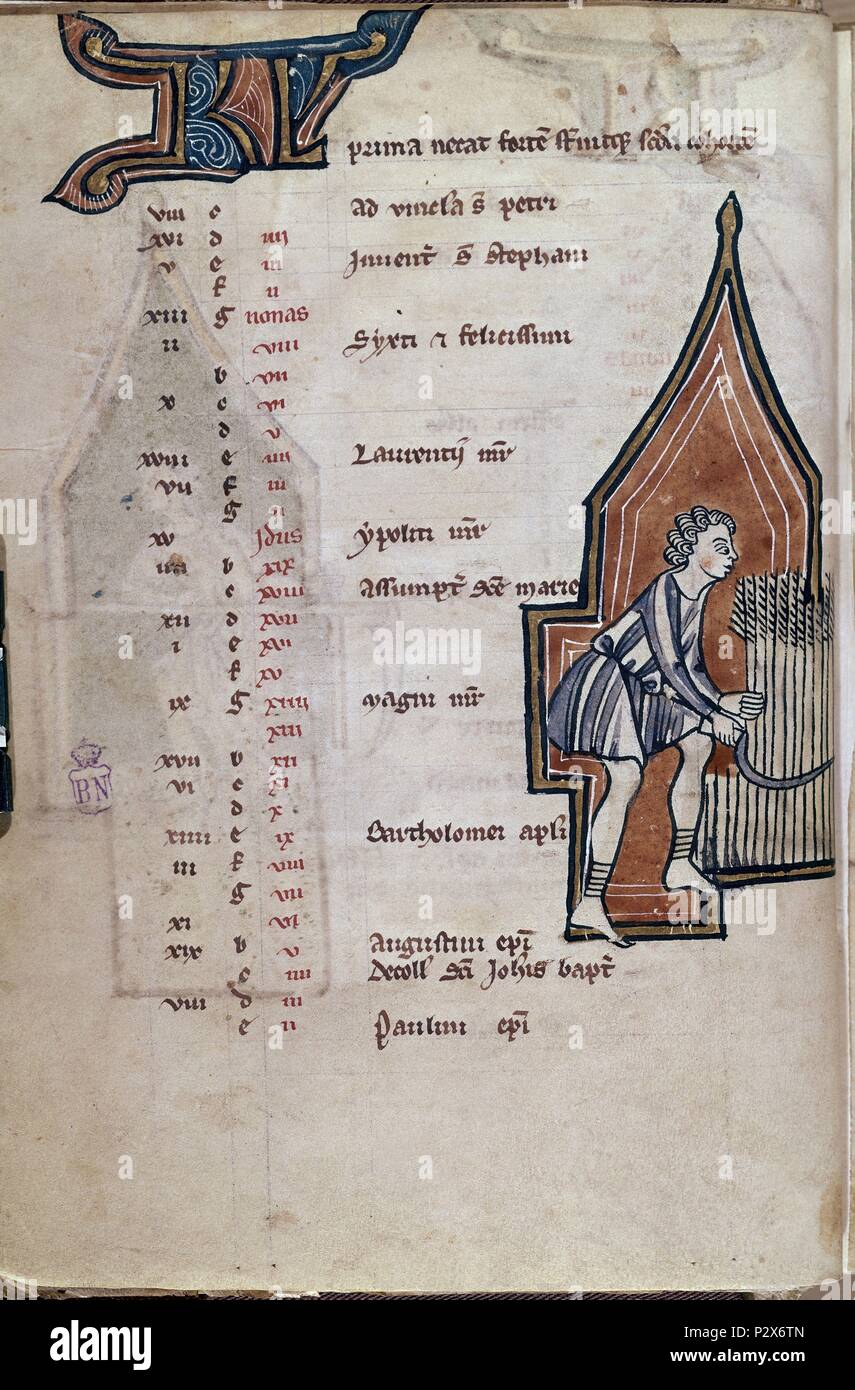 KL
prima necat fortē st̄nitqꝫ scdā cohortē
viii c Ad vincla s̄ petri
xvi d iiij
v e iii Invent̄ s̄ stephani
f ii
xiii g nonas
ii viii Syxti ⁊ felicissimi
b vii
x c vi
d v
xviii e iiij Laurentij mr̄
vii f iii
g ii
xv Idus ypoliti mr̄
iiii b xix
c xviii Assumpt̄ sc̄e marie
xii d xvii
i e xvi
f xv
ix g xiiii magni mr̄
xiii
xvii b xii
vi c xi
d x
xiiii e ix Bartholomei apli
iii f viii
g vii
xi vi
xix b v Augustini epī
c iiii Decoll̄ sc̄i Johīs bapt̄
viii d iii
e ii Paulini epī
BN
alamy
alamy stock photo
P2X6TN
www.alamy.com